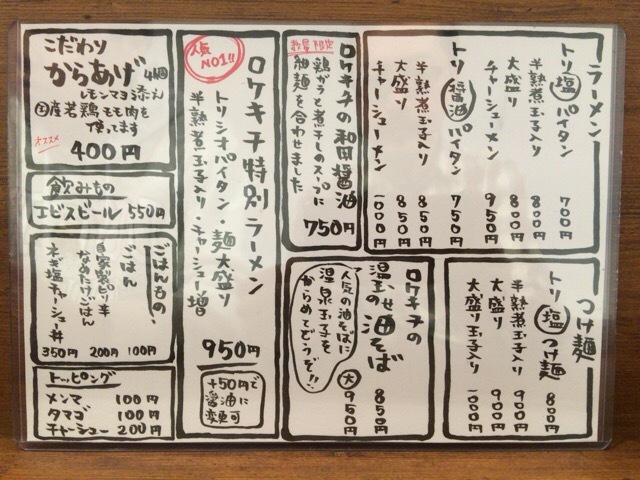 ラーメン
トリ塩パイタン 700円
半熟煮玉子入り 800円
大盛り 800円
チャーシューメン 950円
トリ醤油パイタン 750円
半熟煮玉子入り 850円
大盛り 850円
チャーシューメン 1000円
つけ麺
トリ塩つけ麺 800円
半熟煮玉子入り 900円
大盛り 900円
大盛り玉子入り 1000円
数量限定
ロケキチの和風醤油
鶏ガラと煮干しのスープに
細麺を合わせました
750円
ロケキチの
温玉のせ油そば
850円
大 950円
人気の油そばに
温泉玉子を
からめてどうぞ!!
人気NO1!!
ロケキチ特別ラーメン
トリシオパイタン・麺大盛り
半熟煮玉子入り・チャーシュー増
950円
+50円で
醤油に
変更可
こだわり
からあげ 4個
レモンマヨ添え
国産若鶏モモ肉を
使ってます
オススメ
400円
飲みもの
エビスビール 550円
ごはんもの
ごはん 100円
自家製ピリ辛
なめたけごはん 200円
ネギ塩チャーシュー丼 350円
トッピング
メンマ 100円
タマゴ 100円
チャーシュー 200円